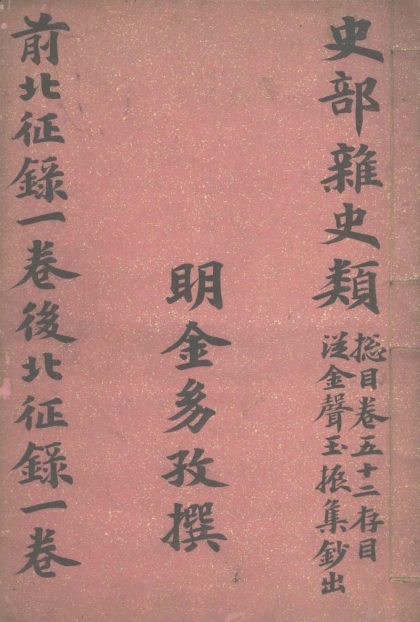 史部雜史類
捴目卷五十二存目
從金聲玉振集鈔出
明金多孜撰
前北征錄一卷後北征錄一卷